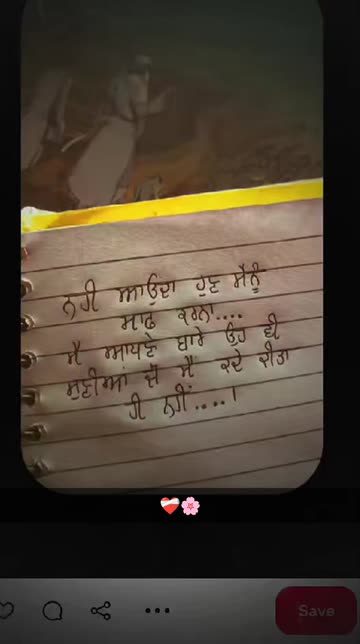 ਨਹੀ ਆਉਂਦਾ ਹੁਣ ਮੈਨੂੰ
ਮਾਫ਼ ਕਰਨਾ....
ਮੈਂ ਆਪਣੇ ਬਾਰੇ ਉਹ ਵੀ
ਸੁਣੀਆਂ ਜੋ ਮੈਂ ਕਦੇ ਕੀਤਾ
ਹੀ ਨਹੀਂ....।
❤️‍🩹🌸
Save